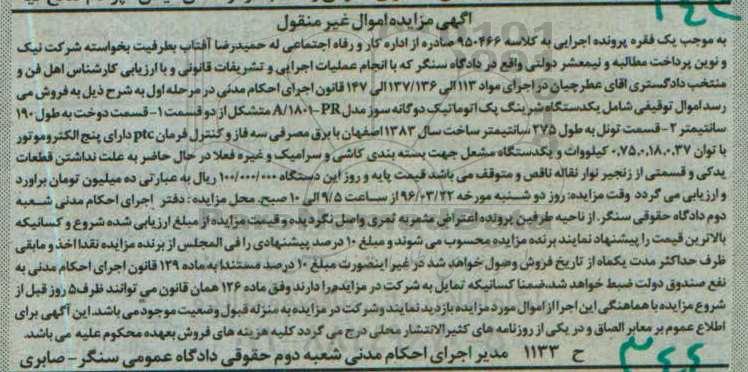 آگهی مزایده اموال غیر منقول
به موجب یک فقره پرونده اجرایی به کلاسه ۹۵۰۴۶۶ صادره از اداره کار و رفاه اجتماعی له حمیدرضا آفتاب بطرفیت بخواسته شرکت نیک
و نوین پرداخت مطالبه و نیمعشر دولتی واقع در دادگاه سنگر که با انجام عملیات اجرایی و تشریفات قانونی و با ارزیابی کارشناس اهل فن و
منتخب دادگستری اقای عطرچیان در اجرای مواد ۱۱۳ الی ۱۳۷/۱۳۶ الی ۱۴۷ قانون اجرای احکام مدنی در مرحله اول به شرح ذیل به فروش می
رسد اموال توقیفی شامل یکدستگاه شرینگ پک اتوماتیک دوگانه سوز مدل A/۱۸۰۱-PR متشکل از دو قسمت ۱- قسمت دوخت به طول ۱۹۰
سانتیمتر ۲- قسمت تونل به طول ۲۷۵ سانتیمتر ساخت سال ۱۳۸۳ اصفهان با برق مصرفی سه فاز و کنترل فرمان ptc دارای پنج الکتروموتور
با توان ۰.۷۵،۰.۱۸،۰.۳۷ کیلووات و یکدستگاه مشعل جهت بسته بندی کاشی و سرامیک و غیره فعلا در حال حاضر به علت نداشتن قطعات
یدکی و قسمتی از زنجیر نوار نقاله ناقص و متوقف می باشد قیمت پایه و روز این دستگاه ۱۰۰/۰۰۰/۰۰۰ ریال به عبارتی ده میلیون تومان براورد
و ارزیابی می گردد وقت مزایده: روز دو شنبه مورخه ۹۶/۰۳/۲۲ از ساعت ۹/۵ الی ۱۰ صبح. محل مزایده: دفتر اجرای احکام مدنی شعبه
دوم دادگاه حقوقی سنگر. از ناحیه طرفین پرونده اعتراض مثمربه ثمری واصل نگردیده و قیمت مزایده از مبلغ ارزیابی شده شروع و کسانیکه
بالاترین قیمت را پیشنهاد نمایند برنده مزایده محسوب می شوند و مبلغ ۱۰ درصد پیشنهادی را فی المجلس از برنده مزایده نقدا اخذ و مابقی
ظرف حداکثر مدت یکماه از تاریخ فروش وصول خواهد شد در غیر اینصورت مبلغ ۱۰ درصد مستندا به ماده ۱۲۹ قانون اجرای احکام مدنی به
نفع صندوق دولت ضبط خواهد شد. ضمنا کسانیکه تمایل به شرکت در مزایده را دارند وفق ماده ۱۲۶ همان قانون می توانند ظرف ۵ روز قبل از
شروع مزایده با هماهنگی این اجرا از اموال مورد مزایده بازدید نمایند و شرکت در مزایده به منزله قبول وضعیت موجود می باشد. این آگهی برای
اطلاع عموم بر معابر الصاق و در یکی از روزنامه های کثیرالانتشار محلی درج می گردد کلیه هزینه های فروش بعهده محکوم علیه می باشد.
ح ۱۱۳۳ مدیر اجرای احکام مدنی شعبه دوم حقوقی دادگاه عمومی سنگر - صابری